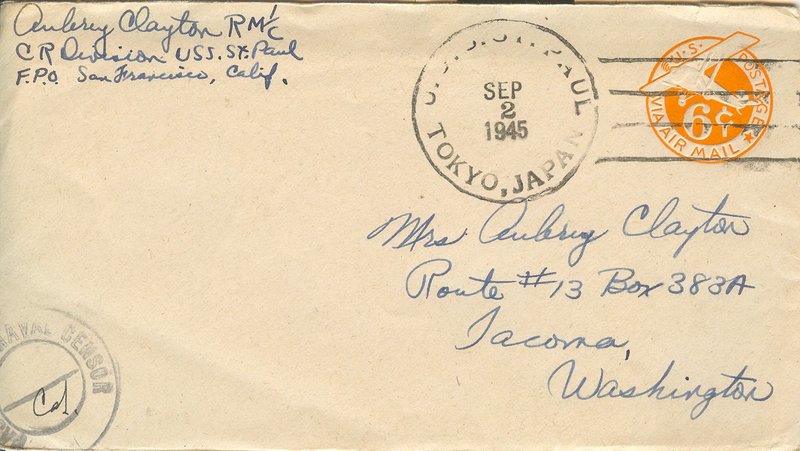 Aubrey Clayton RM1/C
CR Division USS. St. Paul
F.P.O. San Francisco, Calif.
U.S.S. ST. PAUL
SEP
2
1945
TOKYO, JAPAN
U.S. POSTAGE
6¢
VIA AIR MAIL
Mrs Aubrey Clayton
Route #13 Box 383A
Tacoma,
Washington
NAVAL CENSOR